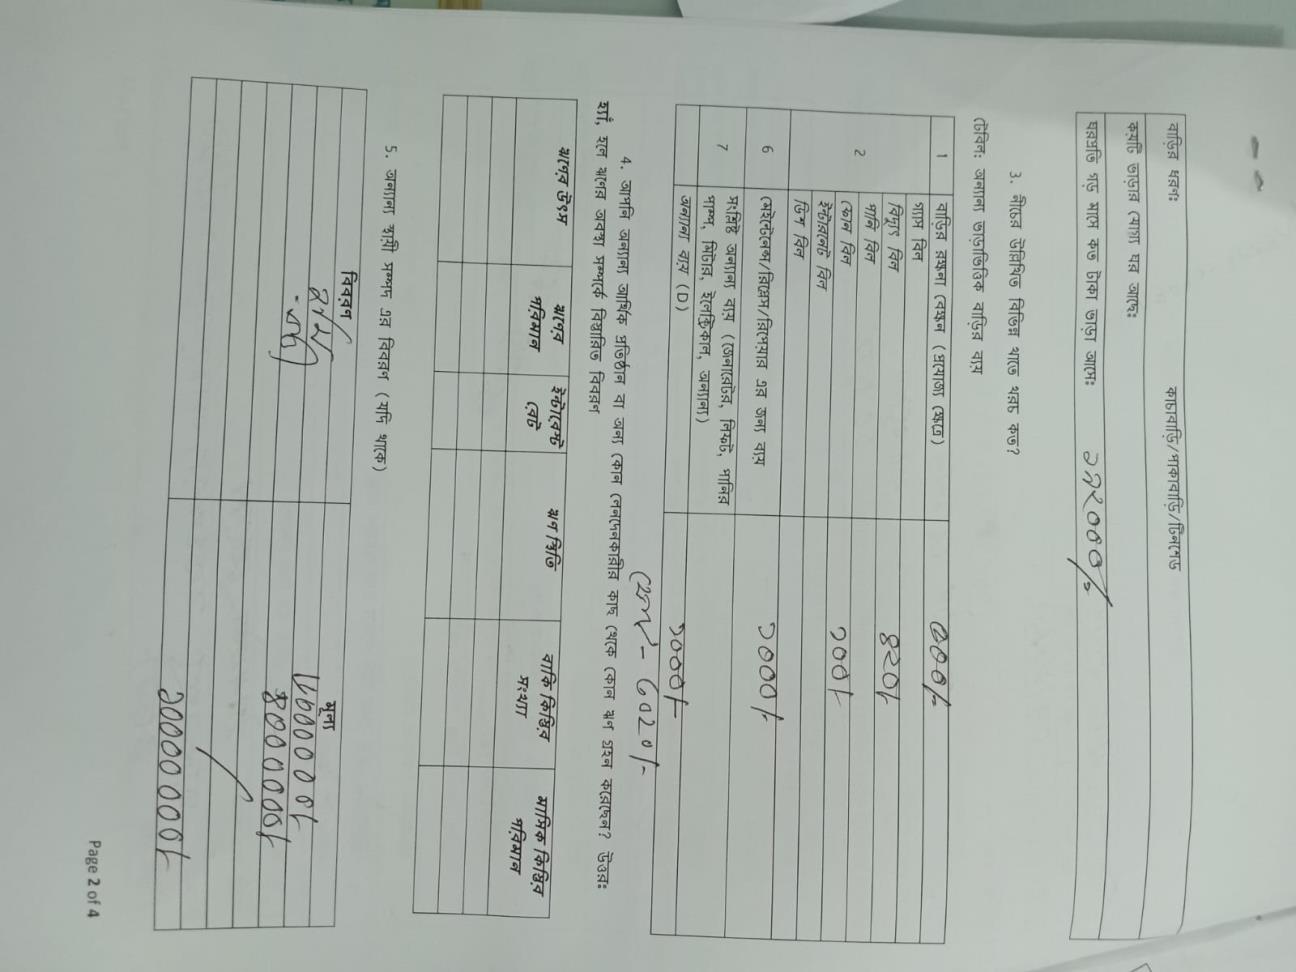 বাড়ির ধরনঃ কাচাবাড়ি/পাকাবাড়ি/টিনশেড
কয়টি ভাড়ার যোগ্য ঘর আছেঃ
ঘরপ্রতি গড় মাসে কত টাকা ভাড়া আসেঃ
3. নীচের উল্লিখিত বিভিন্ন খাতে খরচ কত?
টেবিল: অন্যান্য ভাড়াভিত্তিক বাড়ির ব্যয়
1 বাড়ির রক্ষনা বেক্ষন (প্রযোজ্য ক্ষেত্রে)
2 গ্যাস বিল
বিদ্যুৎ বিল ৪২০/-
পানি বিল
ফোন বিল
ইন্টারনেট বিল
ডিশ বিল
6 মেইন্টেনেন্স/রিপ্লেস/রিপেয়ার এর জন্য ব্যয় ১০০০/-
7 সংশ্লিষ্ট অন্যান্য ব্যয় (জেনারেটর, লিফট, পানির
পাম্প, মিটার, ইলেক্ট্রিকাল, অন্যান্য)
অন্যান্য ব্যয় (D) ১০০০/-
4. আপনি অন্যান্য আর্থিক প্রতিষ্ঠান বা অন্য কোন লেনদেনকারীর কাছ থেকে কোন ঋণ গ্রহন করেছেন? উত্তরঃ
হ্যাঁ, হলে ঋনের অবস্থা সম্পর্কে বিস্তারিত বিবরণ
ঋণের উৎস ঋণের পরিমান ইন্টারেস্ট রেট ঋণ স্থিতি বাকি কিস্তির সংখ্যা মাসিক কিস্তির পরিমান
5. অন্যান্য স্থায়ী সম্পদ এর বিবরণ (যদি থাকে)
বিবরণ মূল্য
Page 2 of 4